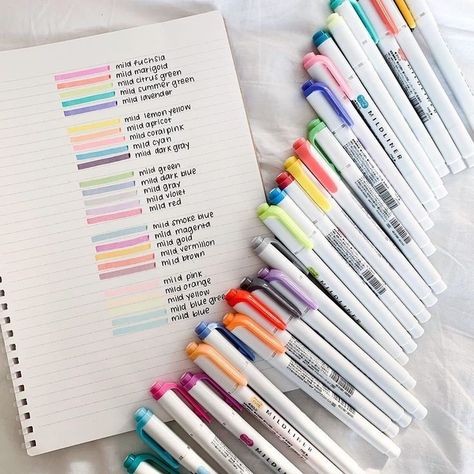 mild fuchsia
mild marigold
mild citrus green
mild summer green
mild lavender
mild lemon yellow
mild apricot
mild coral pink
mild cyan
mild dark gray
mild green
mild dark blue
mild gray
mild violet
mild red
mild smoke blue
mild magenta
mild gold
mild vermillion
mild brown
mild pink
mild orange
mild yellow
mild blue green
mild blue
MILDLINER
MILDLINER
MILDLINER